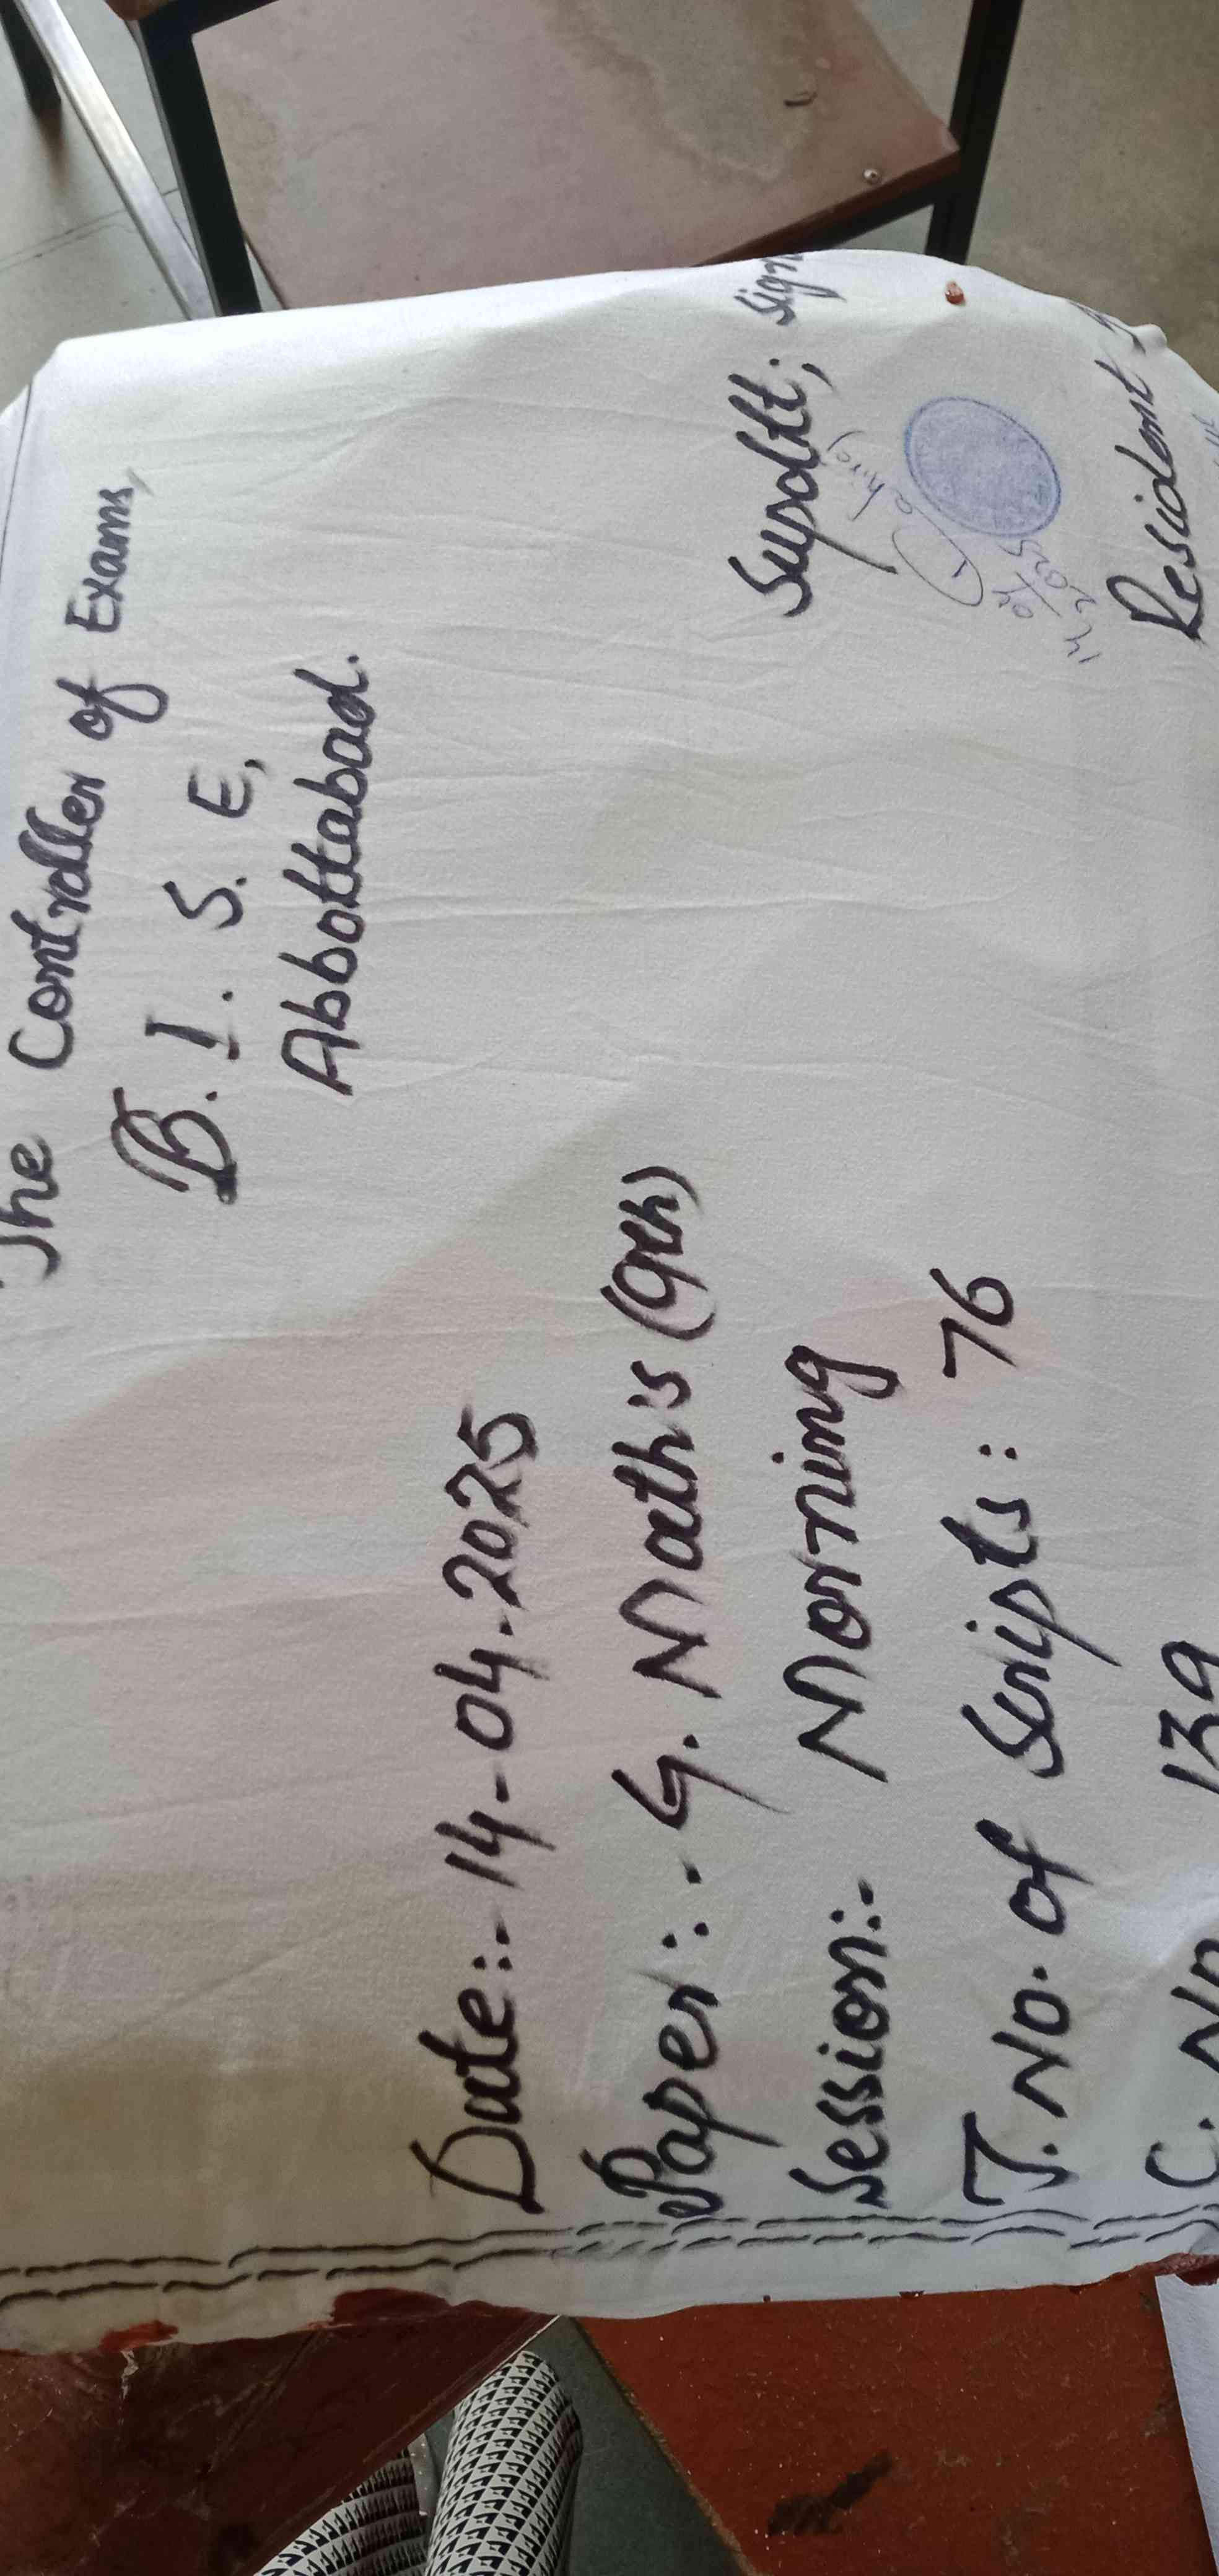 The Controller of Exams,
B. I. S. E,
Abbottabad.
Date:- 14-04-2025
Paper:- G. Math's (9th)
Session:- Morning
T. No. of Scripts: 76
C. No 139
Supdtt; Sign
14/04/2025
Resident